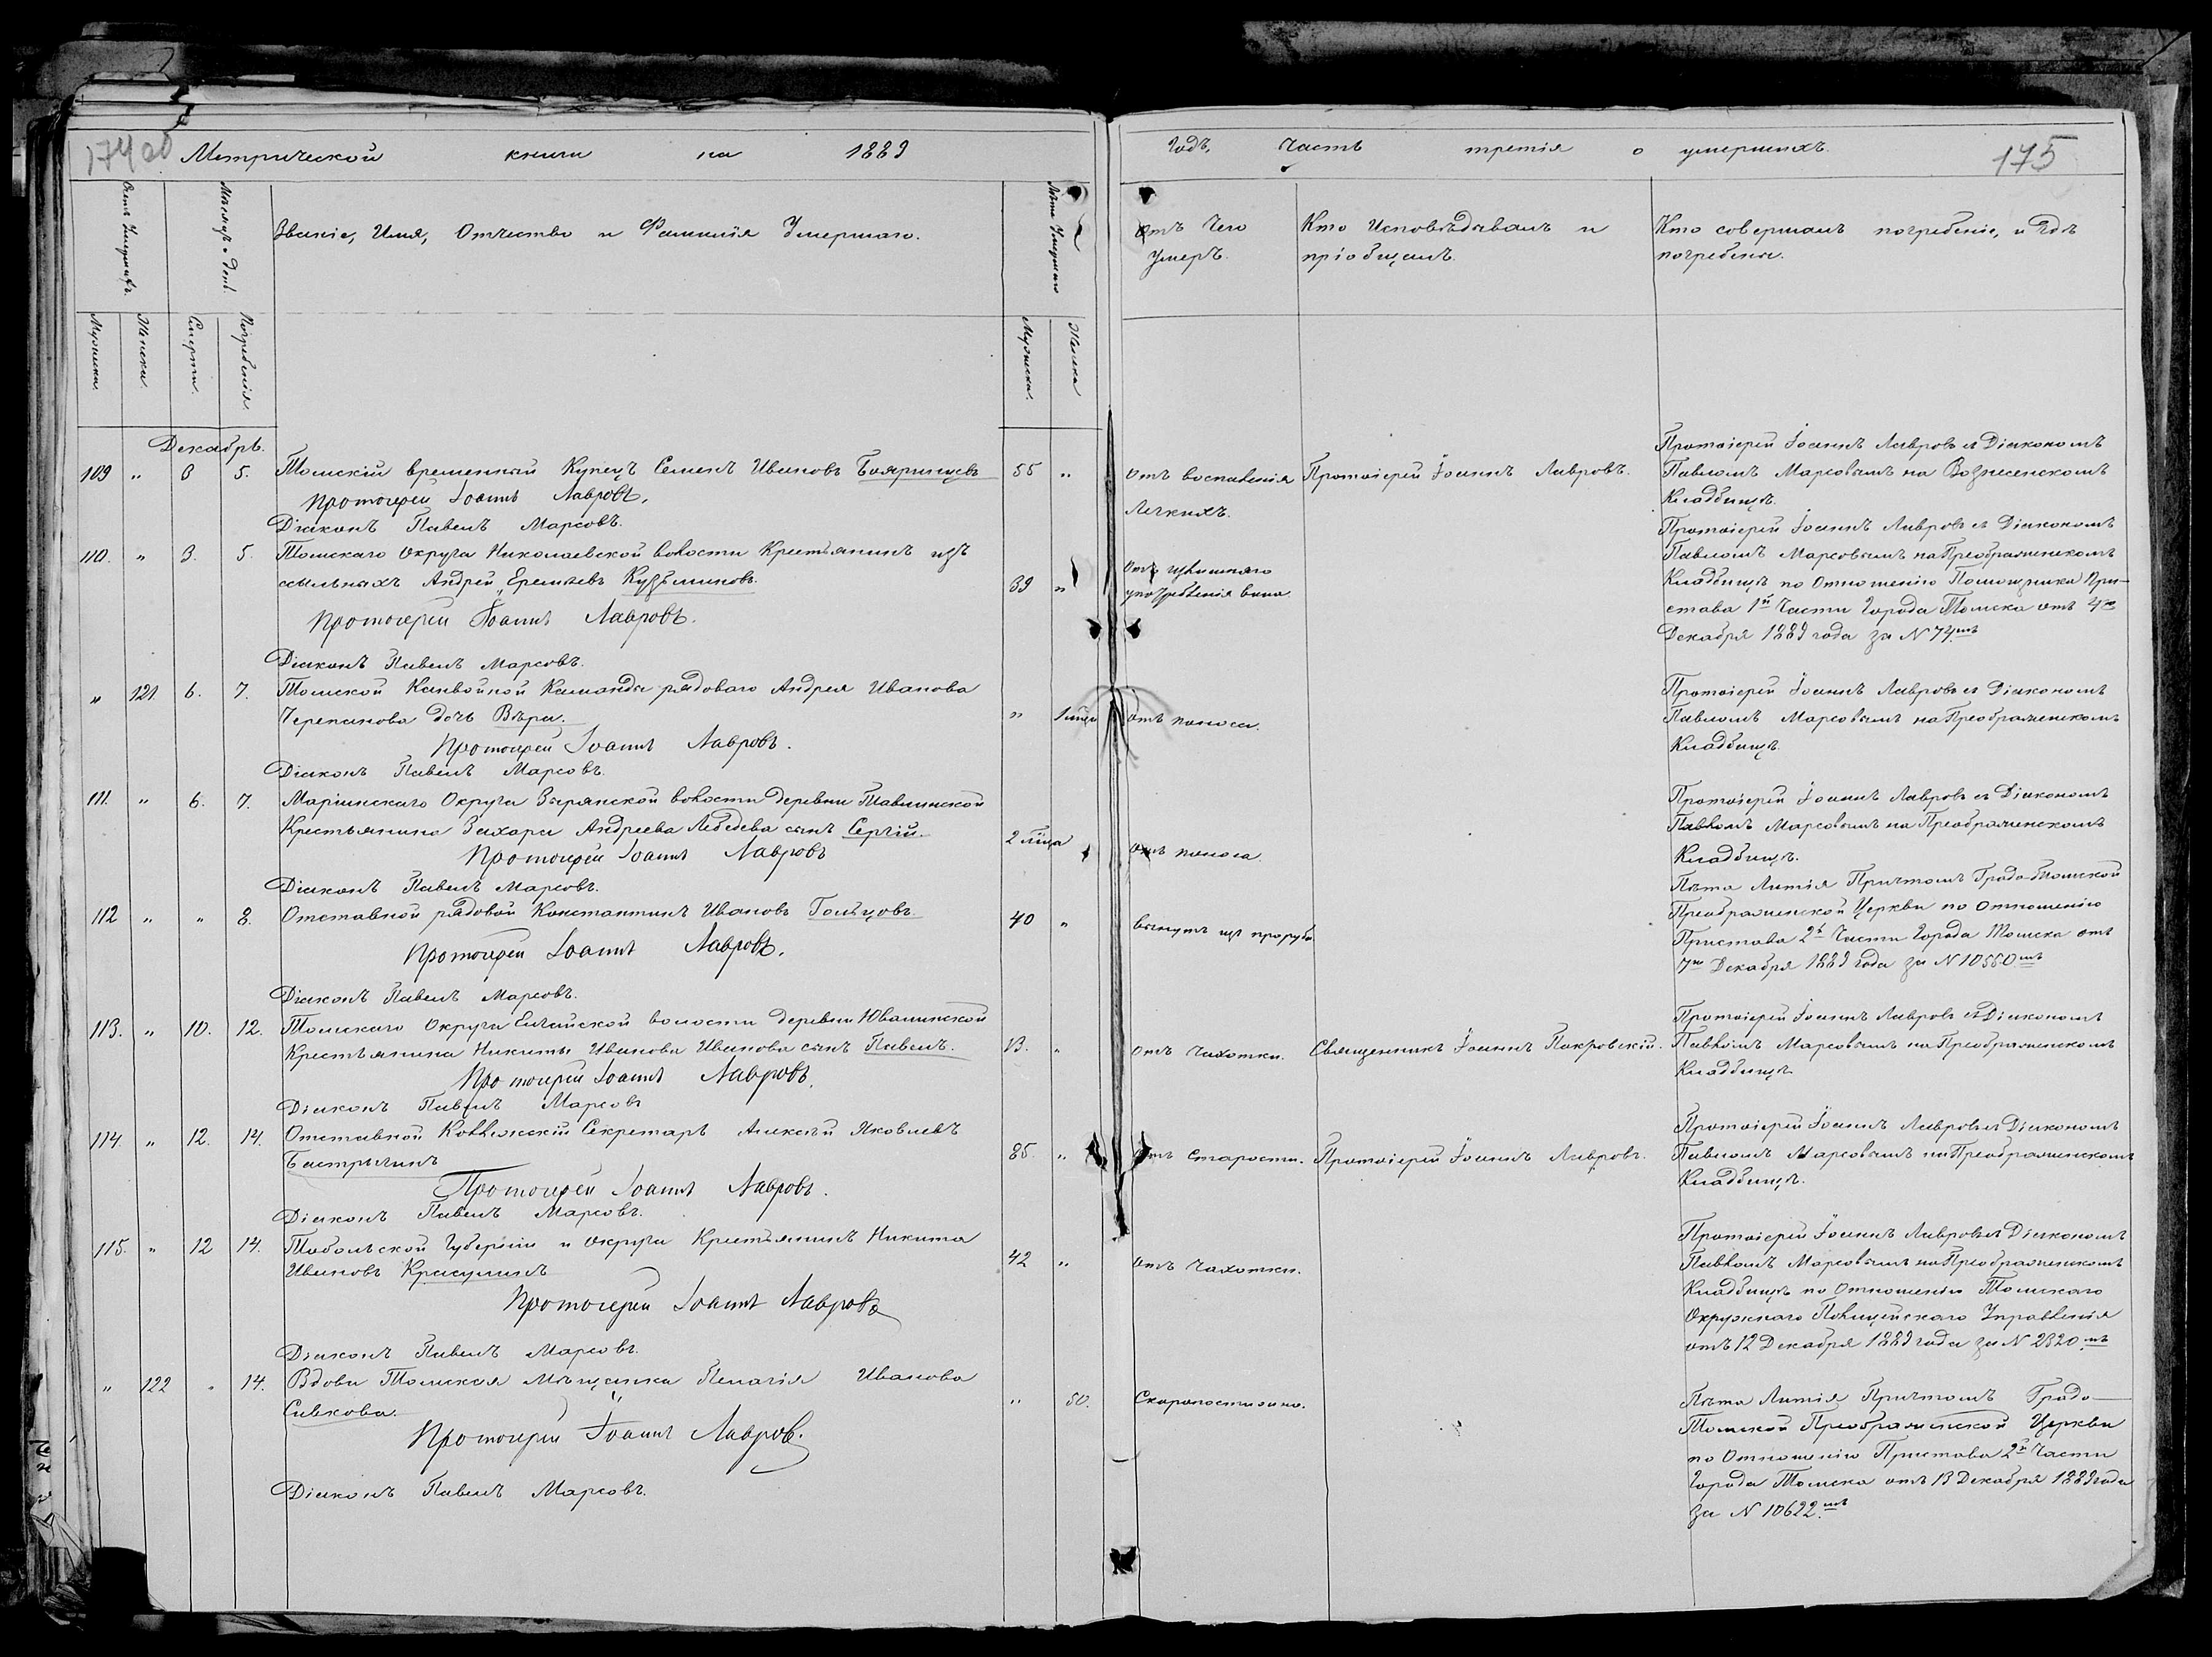 174об
Метрической книги на 1889
Годъ, Часть третія о умершихъ.
175
Счетъ Умершихъ.
Мѣсяцъ и день.
Званіе, Имя, Отчество и Фамилія Умершаго.
Лѣта Умершаго
Мужеска.
Женска.
Смерти.
Погребенія.
Мужеска.
Женска
Отъ Чего
Умеръ.
Кто Исповѣдывалъ и
пріобщалъ.
Кто совершалъ погребеніе, и Гдѣ
погребены.
Декабрь.
109 " 3 5. Томскій временный Купецъ Семенъ Ивановъ Бояринцевъ 55 "
Протоіерей Іоаннъ Лавровъ.
Діаконъ Павелъ Марсовъ.
Отъ воспаленія
Легкихъ.
Протоіерей Іоаннъ Лавровъ.
Протоіерей Іоаннъ Лавровъ съ Діакономъ
Павломъ Марсовымъ на Вознесенскомъ
Кладбищѣ.
110. " 3. 5. Томскаго Округа Николаевской волости Крестьянинъ изъ
ссыльныхъ Андрей Еремѣевъ Кузьминовъ. 39 "
Протоіерей Іоаннъ Лавровъ.
Діаконъ Павелъ Марсовъ.
Отъ излишняго
употребленія вина.
Протоіерей Іоаннъ Лавровъ съ Діакономъ
Павломъ Марсовымъ на Преображенскомъ
Кладбищѣ по Отношенію Помощника При-
става 1й Части Города Томска отъ 4го
Декабря 1889 года за N 74мъ
" 121 6. 7. Томской Канвойной Каманды рядоваго Андрея Иванова
Черепанова дочь Вѣра. " 1 мѣсц
Протоіерей Іоаннъ Лавровъ.
Діаконъ Павелъ Марсовъ.
Отъ поноса.
Протоіерей Іоаннъ Лавровъ съ Діакономъ
Павломъ Марсовымъ на Преображенскомъ
Кладбищѣ.
111. " 6. 7. Маріинскаго Округа Зырянской волости деревни Тавлинской
Крестьянина Захара Андреева Лебедева сынъ Сергій. 2 мѣсца
Протоіерей Іоаннъ Лавровъ
Діаконъ Павелъ Марсовъ.
Отъ поноса.
Протоіерей Іоаннъ Лавровъ съ Діакономъ
Павломъ Марсовымъ на Преображенскомъ
Кладбищѣ.
112 " " 8. Отставной рядовой Константинъ Ивановъ Гольцовъ. 40 "
Протоіерей Іоаннъ Лавровъ.
Діаконъ Павелъ Марсовъ.
Вынутъ изъ проруби
Пѣта Литія Причтомъ Градо-Томской
Преображенской Церкви по Отношенію
Пристава 2й Части Города Томска отъ
7го Декабря 1889 года за N 10550мъ
113. " 10. 12. Томскаго Округа Елгайской волости деревни Ювалинской
Крестьянина Никиты Иванова Иванова сынъ Павелъ. 13. "
Протоіерей Іоаннъ Лавровъ.
Діаконъ Павелъ Марсовъ
Отъ чахотки.
Священникъ Іоаннъ Покровскій.
Протоіерей Іоаннъ Лавровъ съ Діакономъ
Павломъ Марсовымъ на Преображенскомъ
Кладбищѣ.
114. " 12. 14. Отставной Коллежскій Секретарь Алексѣй Яковлевъ
Бастрыгинъ 85. "
Протоіерей Іоаннъ Лавровъ.
Діаконъ Павелъ Марсовъ.
Отъ Старости.
Протоіерей Іоаннъ Лавровъ.
Протоіерей Іоаннъ Лавровъ съ Діакономъ
Павломъ Марсовымъ на Преображенскомъ
Кладбищѣ.
115. " 12 14. Тобольской Губерніи и округа Крестьянинъ Никита
Ивановъ Красулинъ 42 "
Протоіерей Іоаннъ Лавровъ
Діаконъ Павелъ Марсовъ.
Отъ чахотки.
Протоіерей Іоаннъ Лавровъ съ Діакономъ
Павломъ Марсовымъ на Преображенскомъ
Кладбищѣ по Отношенію Томскаго
Окружнаго Полицейскаго Управленія
отъ 12 Декабря 1889 года за N 2320.мъ
" 122 " 14. Вдова Томская Мѣщанка Пелагія Иванова
Сивкова. " 50.
Протоіерей Іоаннъ Лавровъ.
Діаконъ Павелъ Марсовъ.
Скоропостижно.
Пѣта Литія Причтомъ Градо-
Томской Преображенской Церкви
по Отношенію Пристава 2й Части
Города Томска отъ 13 Декабря 1889 года
за N 10622.мъ